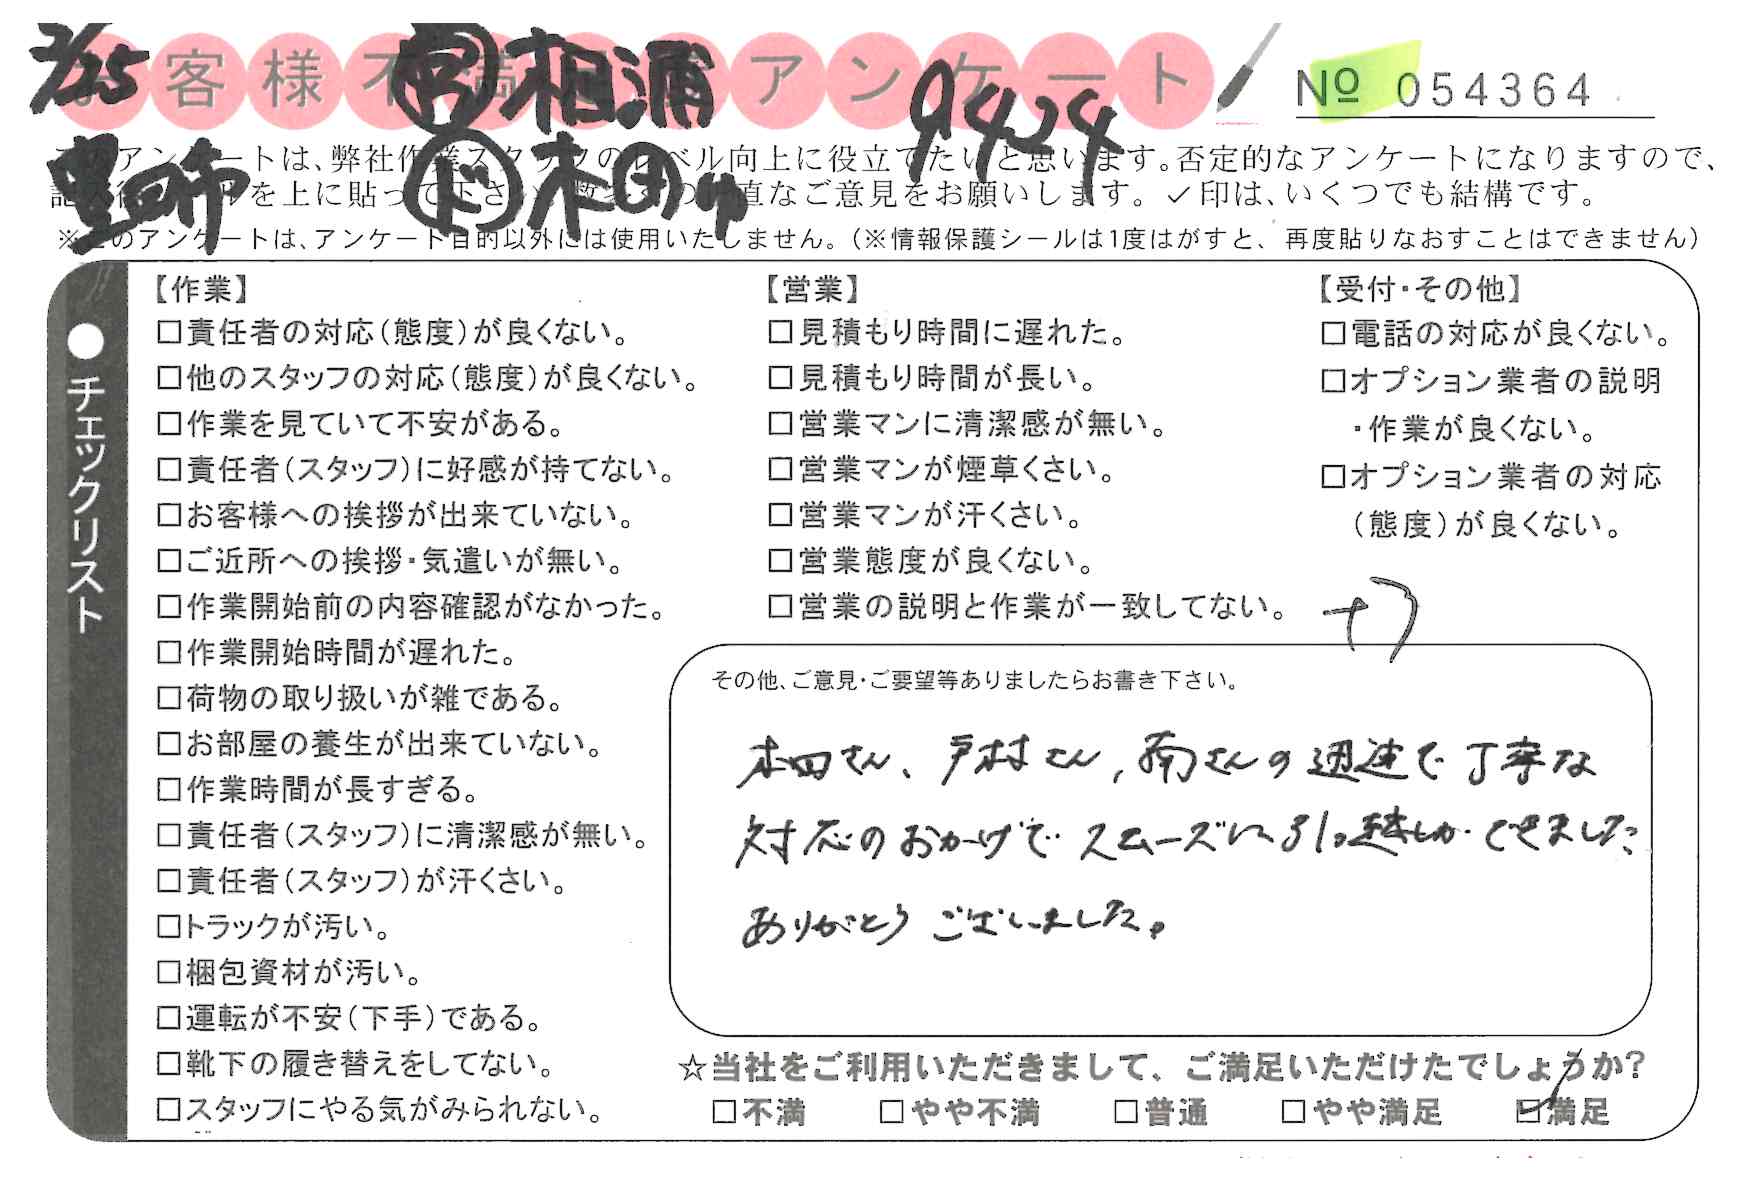 2/25 労 相浦 9424
お客様不満足度アンケート
№ 054364
豊田市 ド 本田
このアンケートは、弊社作業スタッフのレベル向上に役立てたいと思います。否定的なアンケートになりますので、
を上に貼って下さい 直なご意見をお願いします。✓印は、いくつでも結構です。
※このアンケートは、アンケート目的以外には使用いたしません。(※情報保護シールは1度はがすと、再度貼りなおすことはできません)
●チェックリスト
【作業】
□責任者の対応(態度)が良くない。
□他のスタッフの対応(態度)が良くない。
□作業を見ていて不安がある。
□責任者(スタッフ)に好感が持てない。
□お客様への挨拶が出来ていない。
□ご近所への挨拶・気遣いが無い。
□作業開始前の内容確認がなかった。
□作業開始時間が遅れた。
□荷物の取り扱いが雑である。
□お部屋の養生が出来ていない。
□作業時間が長すぎる。
□責任者(スタッフ)に清潔感が無い。
□責任者(スタッフ)が汗くさい。
□トラックが汚い。
□梱包資材が汚い。
□運転が不安(下手)である。
□靴下の履き替えをしてない。
□スタッフにやる気がみられない。
【営業】
□見積もり時間に遅れた。
□見積もり時間が長い。
□営業マンに清潔感が無い。
□営業マンが煙草くさい。
□営業マンが汗くさい。
□営業態度が良くない。
□営業の説明と作業が一致してない。
【受付・その他】
□電話の対応が良くない。
□オプション業者の説明
・作業が良くない。
□オプション業者の対応
(態度)が良くない。
その他、ご意見・ご要望等ありましたらお書き下さい。
本田さん、戸村さん、南さんの迅速で丁寧な
対応のおかげでスムーズに引っ越しができました
ありがとうございました。
☆当社をご利用いただきまして、ご満足いただけたでしょうか?
□不満 □やや不満 □普通 □やや満足 ☑満足